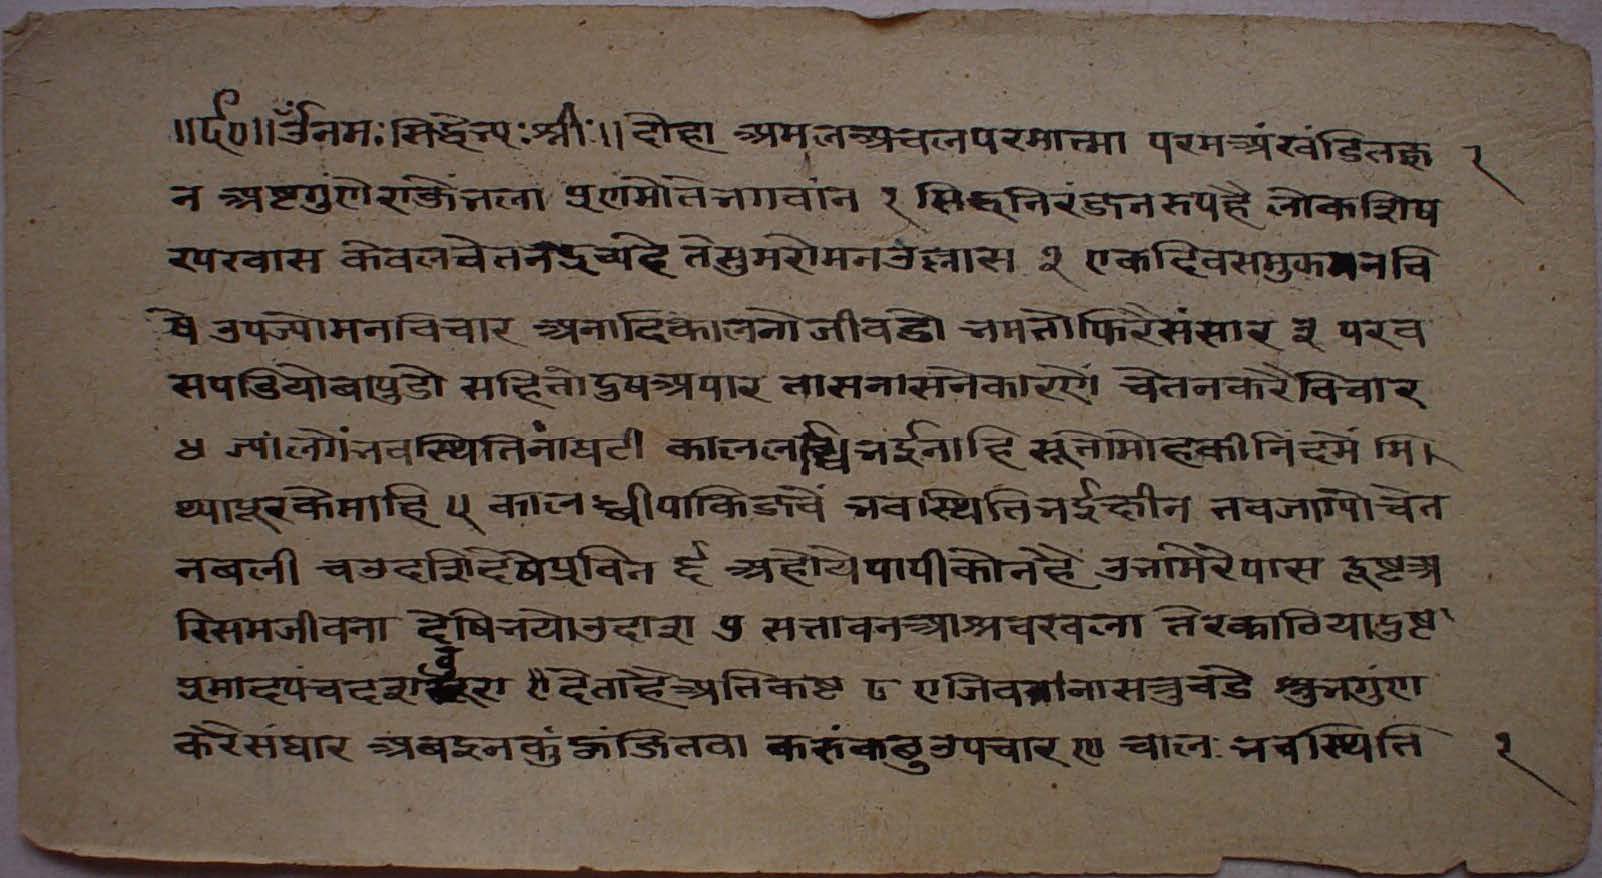 ॥र्द०॥ ॐ नमः सिद्धेभ्यः श्रीः॥ दोहा अमलअचलपरमात्मा परमअखंडितज्ञा १
न अष्टगुंणेराजेंभला प्रणमोतेभगवांन १ सिद्धनिरंजनरूपहै लोकशिष
रपरवास केवलचेतनद्रव्यहै तेसुमरोमनउल्लास २ एकदिवसमुफमनवि
षे उपज्योमनविचार अनादिकालनोजीवडो भमतोफिरैसंसार ३ परव
सपडियोबापुडो सहितोदुषअपार तासनासनेकारणें चेतनकरैविचार
४ ज्यांलगेंभवस्थितिनांघटी काललब्धिभईनाहि सूतोमोहकीनिंदमें मि।
थ्यापूरकेमाहि ५ कालब्धीपाकिजवें भवस्थितिभईहीन तवजाग्योचेत
नबली चउदशिदेषेप्रविन ६ अहोयेपापीकोनहै उभामेरेपास दुष्टअ
रिसमजीवना देषिभयोउदास ७ सत्तावनआश्रवरवला तेरकाठियादुष्ट
प्रमादपंचदश दैताहैअतिकष्ट ८ एजिवनानासत्रुवडे शुभगुंण
करैसंघार अबइनकुंजंजितवा करुंकछुउपचार ९ चाल॰ भवस्थिति १